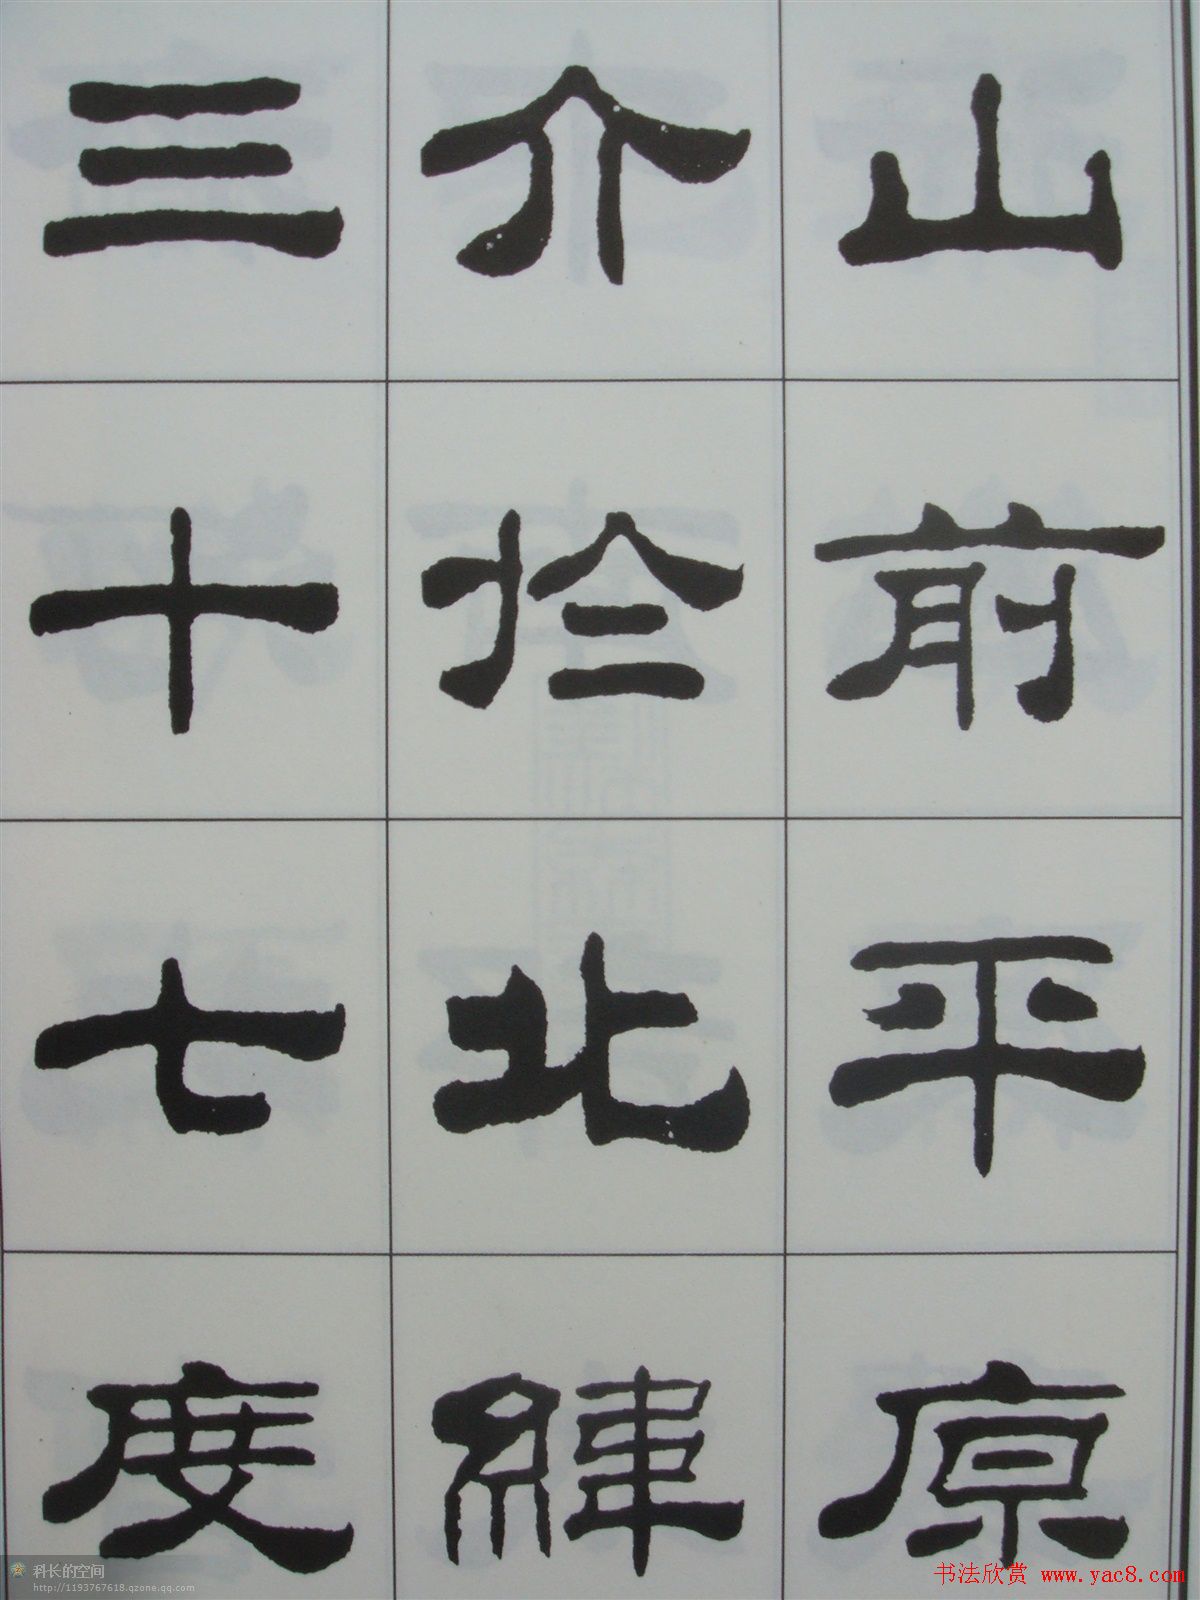 山前平原
介於北緯
三十七度
科长的空间
http://1193767618.qzone.qq.com
书法欣赏 www.yac8.com